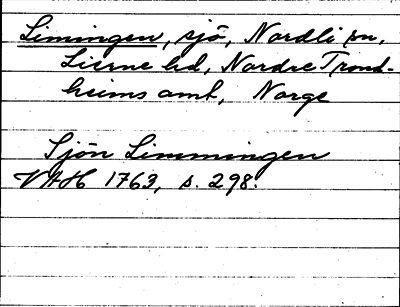 Limingen, sjö, Nordli sn,
Lierne hd, Nordre Trond-
heims amt, Norge
Sjön Limmingen
VAH 1763, s. 298.